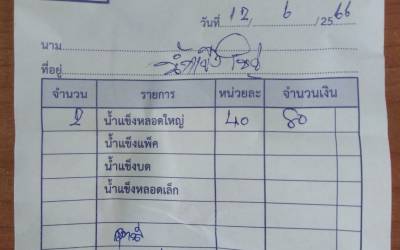 วันที่ 12 / 6 / 2566
นาม
ที่อยู่
จำนวน รายการ หน่วยละ จำนวนเงิน
2 น้ำแข็งหลอดใหญ่ 40 80
น้ำแข็งแพ็ค
น้ำแข็งบด
น้ำแข็งหลอดเล็ก